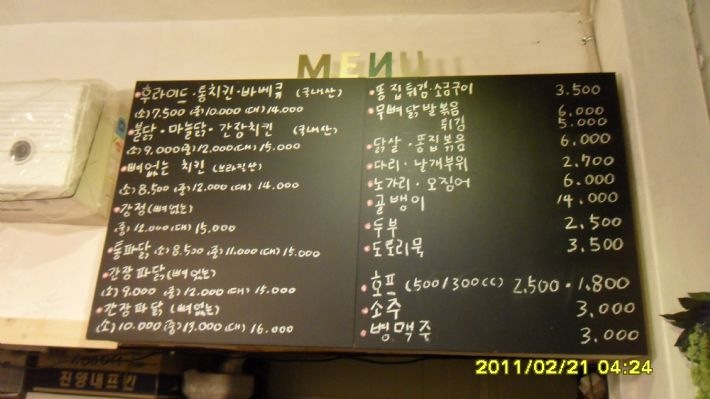 MENU
후라이드·통치킨·바베큐 (국내산)
(소)7.500 (중)10.000 (대)14.000
불닭·마늘닭·간장치킨 (국내산)
(소)9.000 (중)12.000 (대)15.000
뼈없는 치킨 (브라질산)
(소)8.500 (중)12.000 (대)14.000
강정 (뼈없는)
(중)12.000 (대)15.000
통파닭 (소)8.500 (중)11.000 (대)15.000
간장파닭 (뼈없는)
(소)9.000 (중)12.000 (대)15.000
간장파닭 (뼈없는)
(소)10.000 (중)13.000 (대)16.000
똥집튀김·소금구이 3.500
무뼈닭발볶음 6.000
튀김 5.000
닭살·똥집볶음 6.000
다리·날개부위 2.700
노가리·오징어 6.000
골뱅이 14.000
두부 2.500
도토리묵 3.500
호프 (500/300cc) 2.500·1.800
소주 3.000
병맥주 3.000
진양내프킨
2011/02/21 04:24